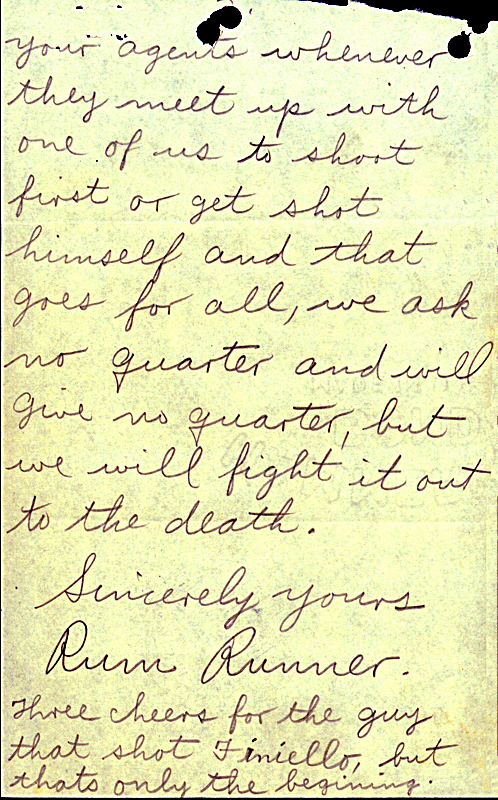 your agents whenever
they meet up with
one of us to shoot
first or get shot
himself and that
goes for all, we ask
no quarter and will
give no quarter, but
we will fight it out
to the death.
Sincerely yours
Rum Runner.
Three cheers for the guy
that shot Finiello, but
thats only the begining.